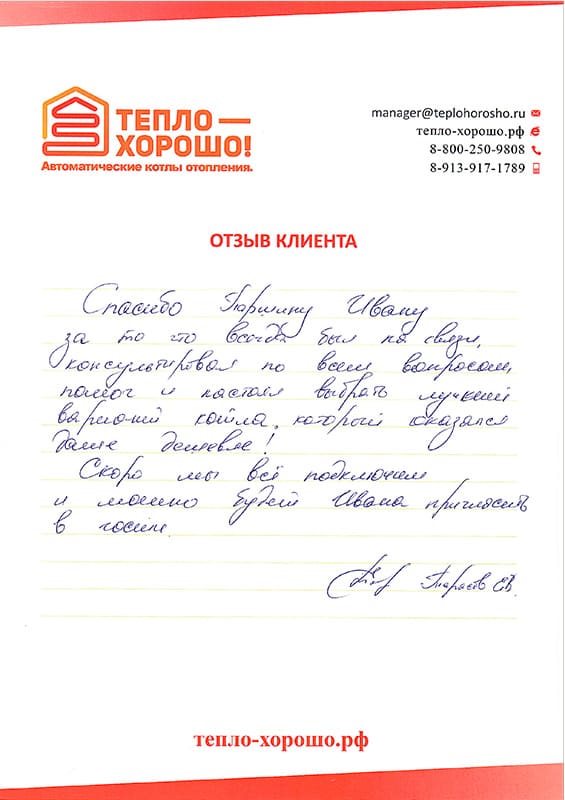 ТЕПЛО —
ХОРОШО!
Автоматические котлы отопления.
manager@teplohorosho.ru
тепло-хорошо.рф
8-800-250-9808
8-913-917-1789
ОТЗЫВ КЛИЕНТА
Спасибо Паршину Ивану
за то что всегда был на связи,
консультировал по всем вопросам,
помог и настоял выбрать лучший
вариант котла, который оказался
даже дешевле!
Скоро мы всё подключим
и можно будет Ивана пригласить
в гости
Тарасов Е.В.
тепло-хорошо.рф